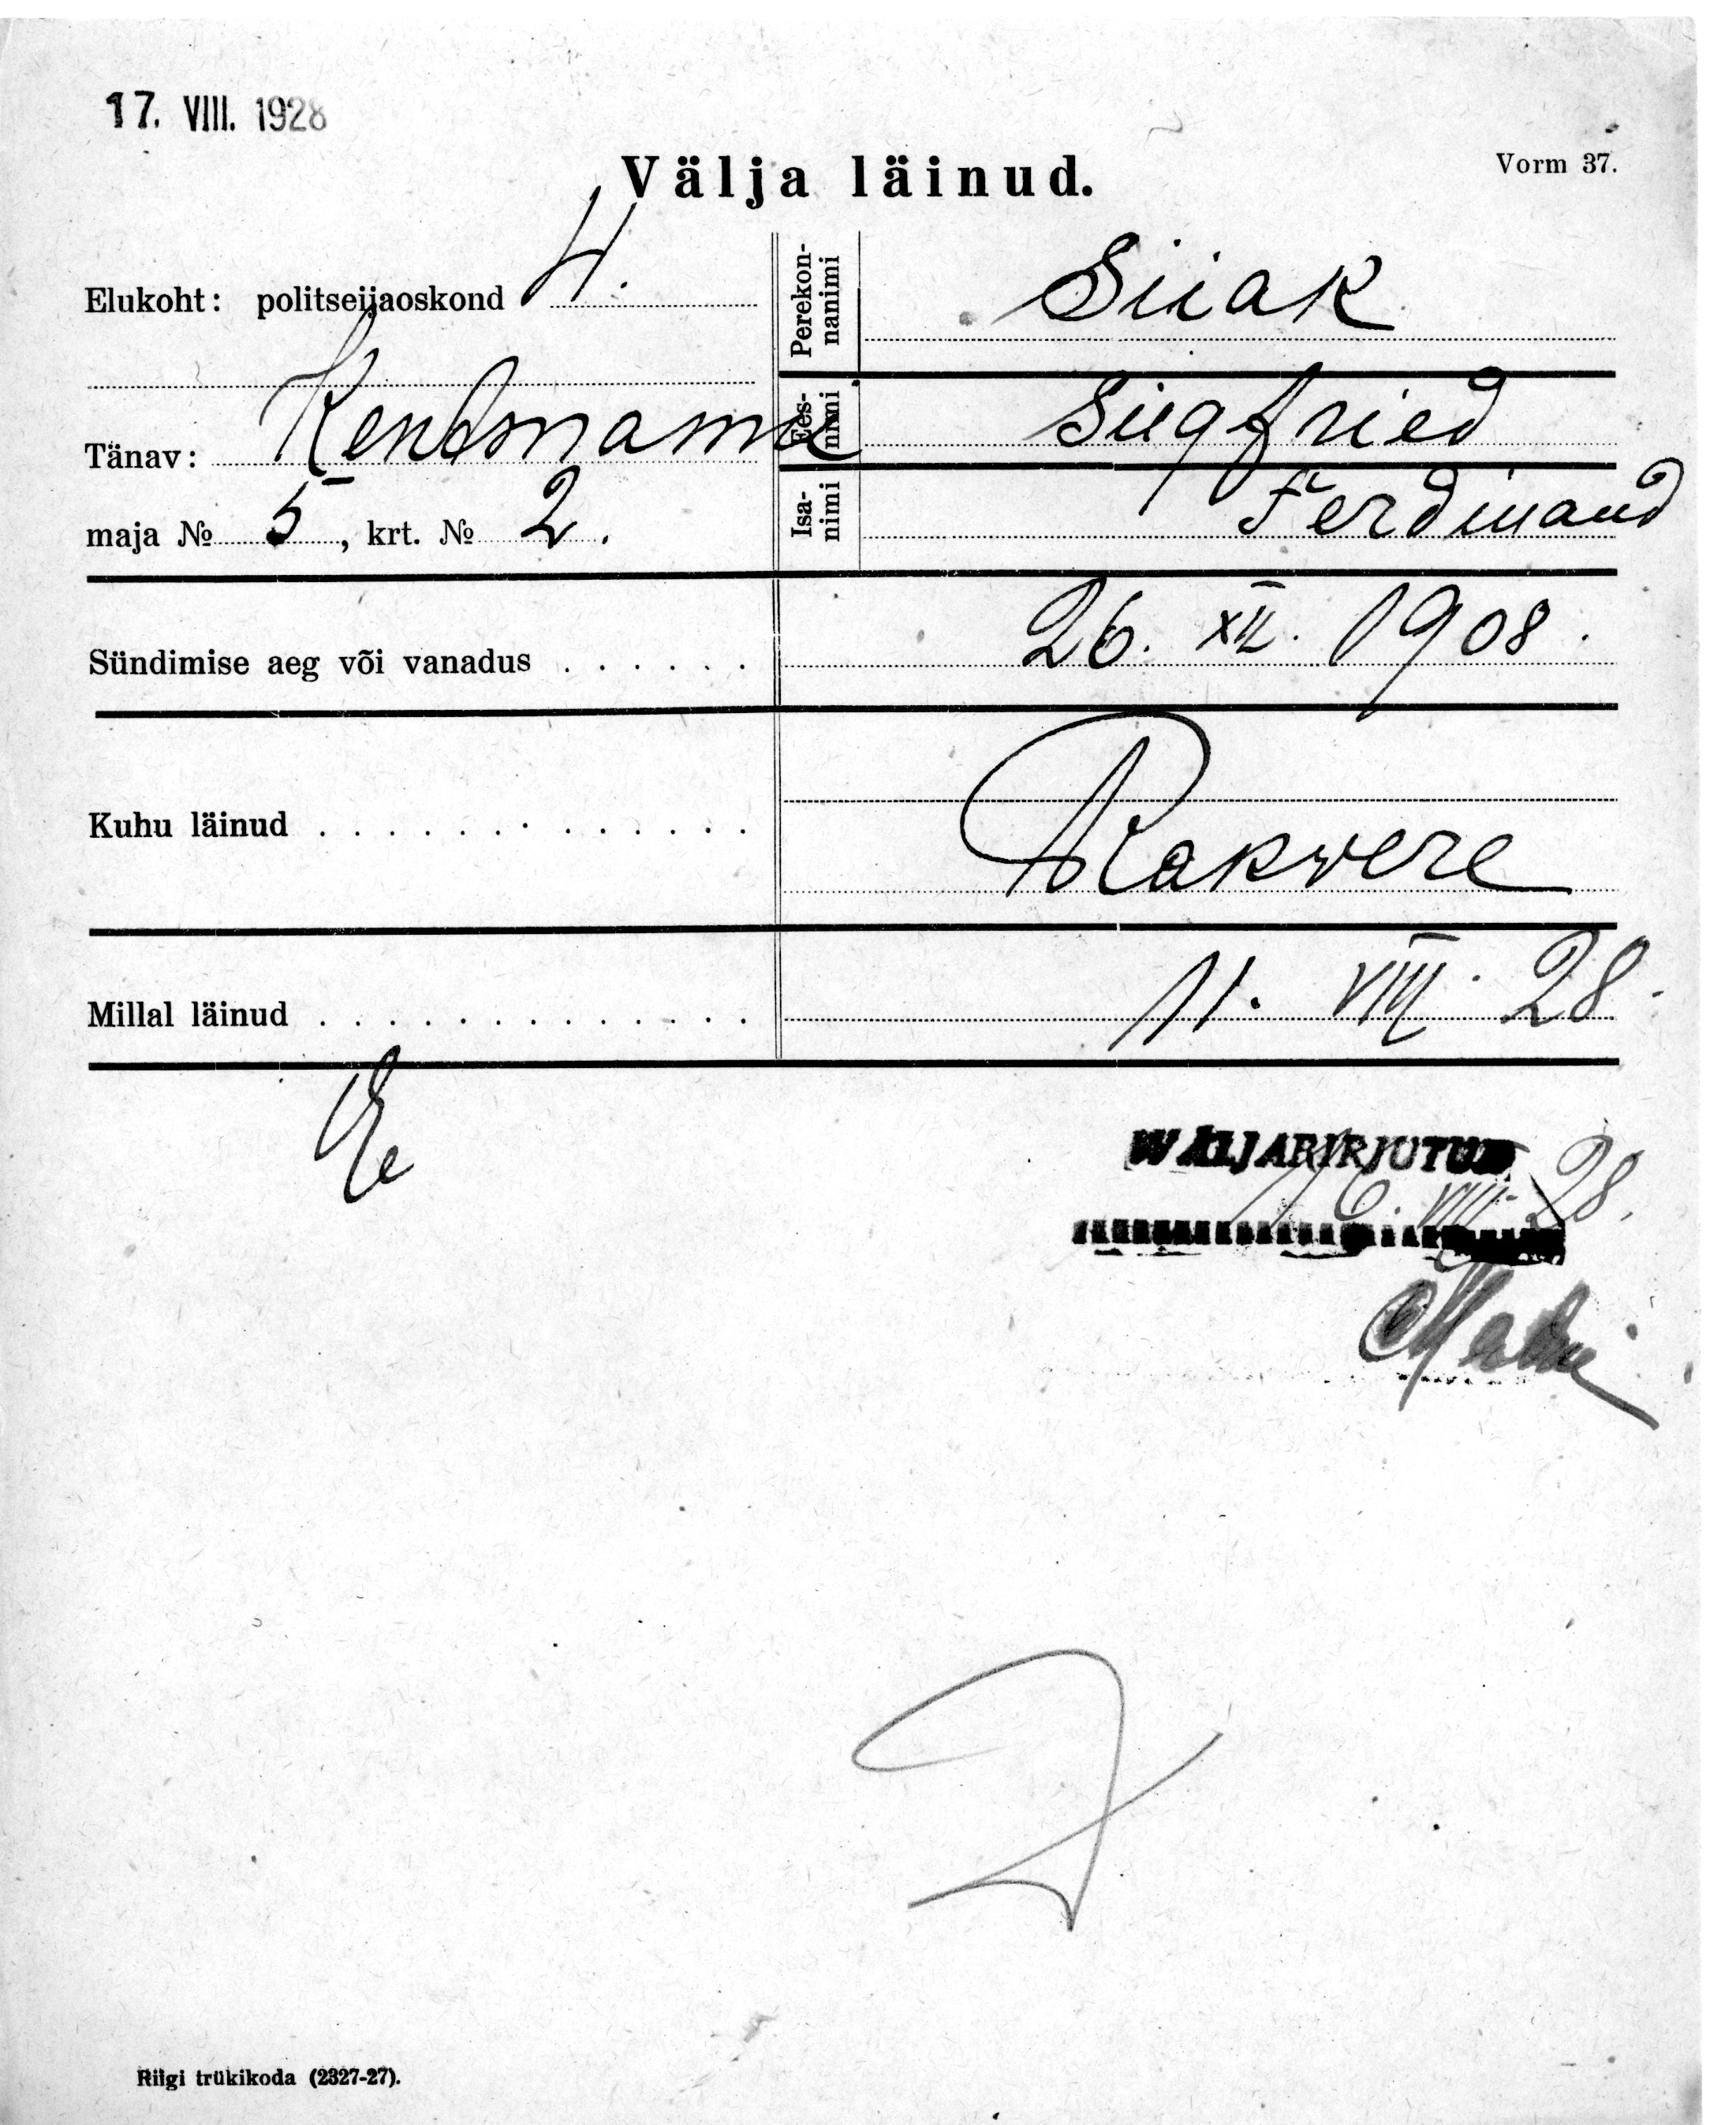 17. VIII. 1928
Vorm 37.
Välja läinud.
Elukoht: politseijaoskond 4.
Tänav: Kentmanni
maja № 5, krt. № 2.
Perekonnanimi Siiak
Eesnimi Siegfried
Isanimi Ferdinand
Sündimise aeg või vanadus . . . . . . 26. XII. 1908.
Kuhu läinud . . . . . . . . . . . . . Rakvere
Millal läinud . . . . . . . . . . . . . 11. VIII. 28.
WÄLJAKIRJUTUD
16. VIII 28.
Riigi trükikoda (2327-27).